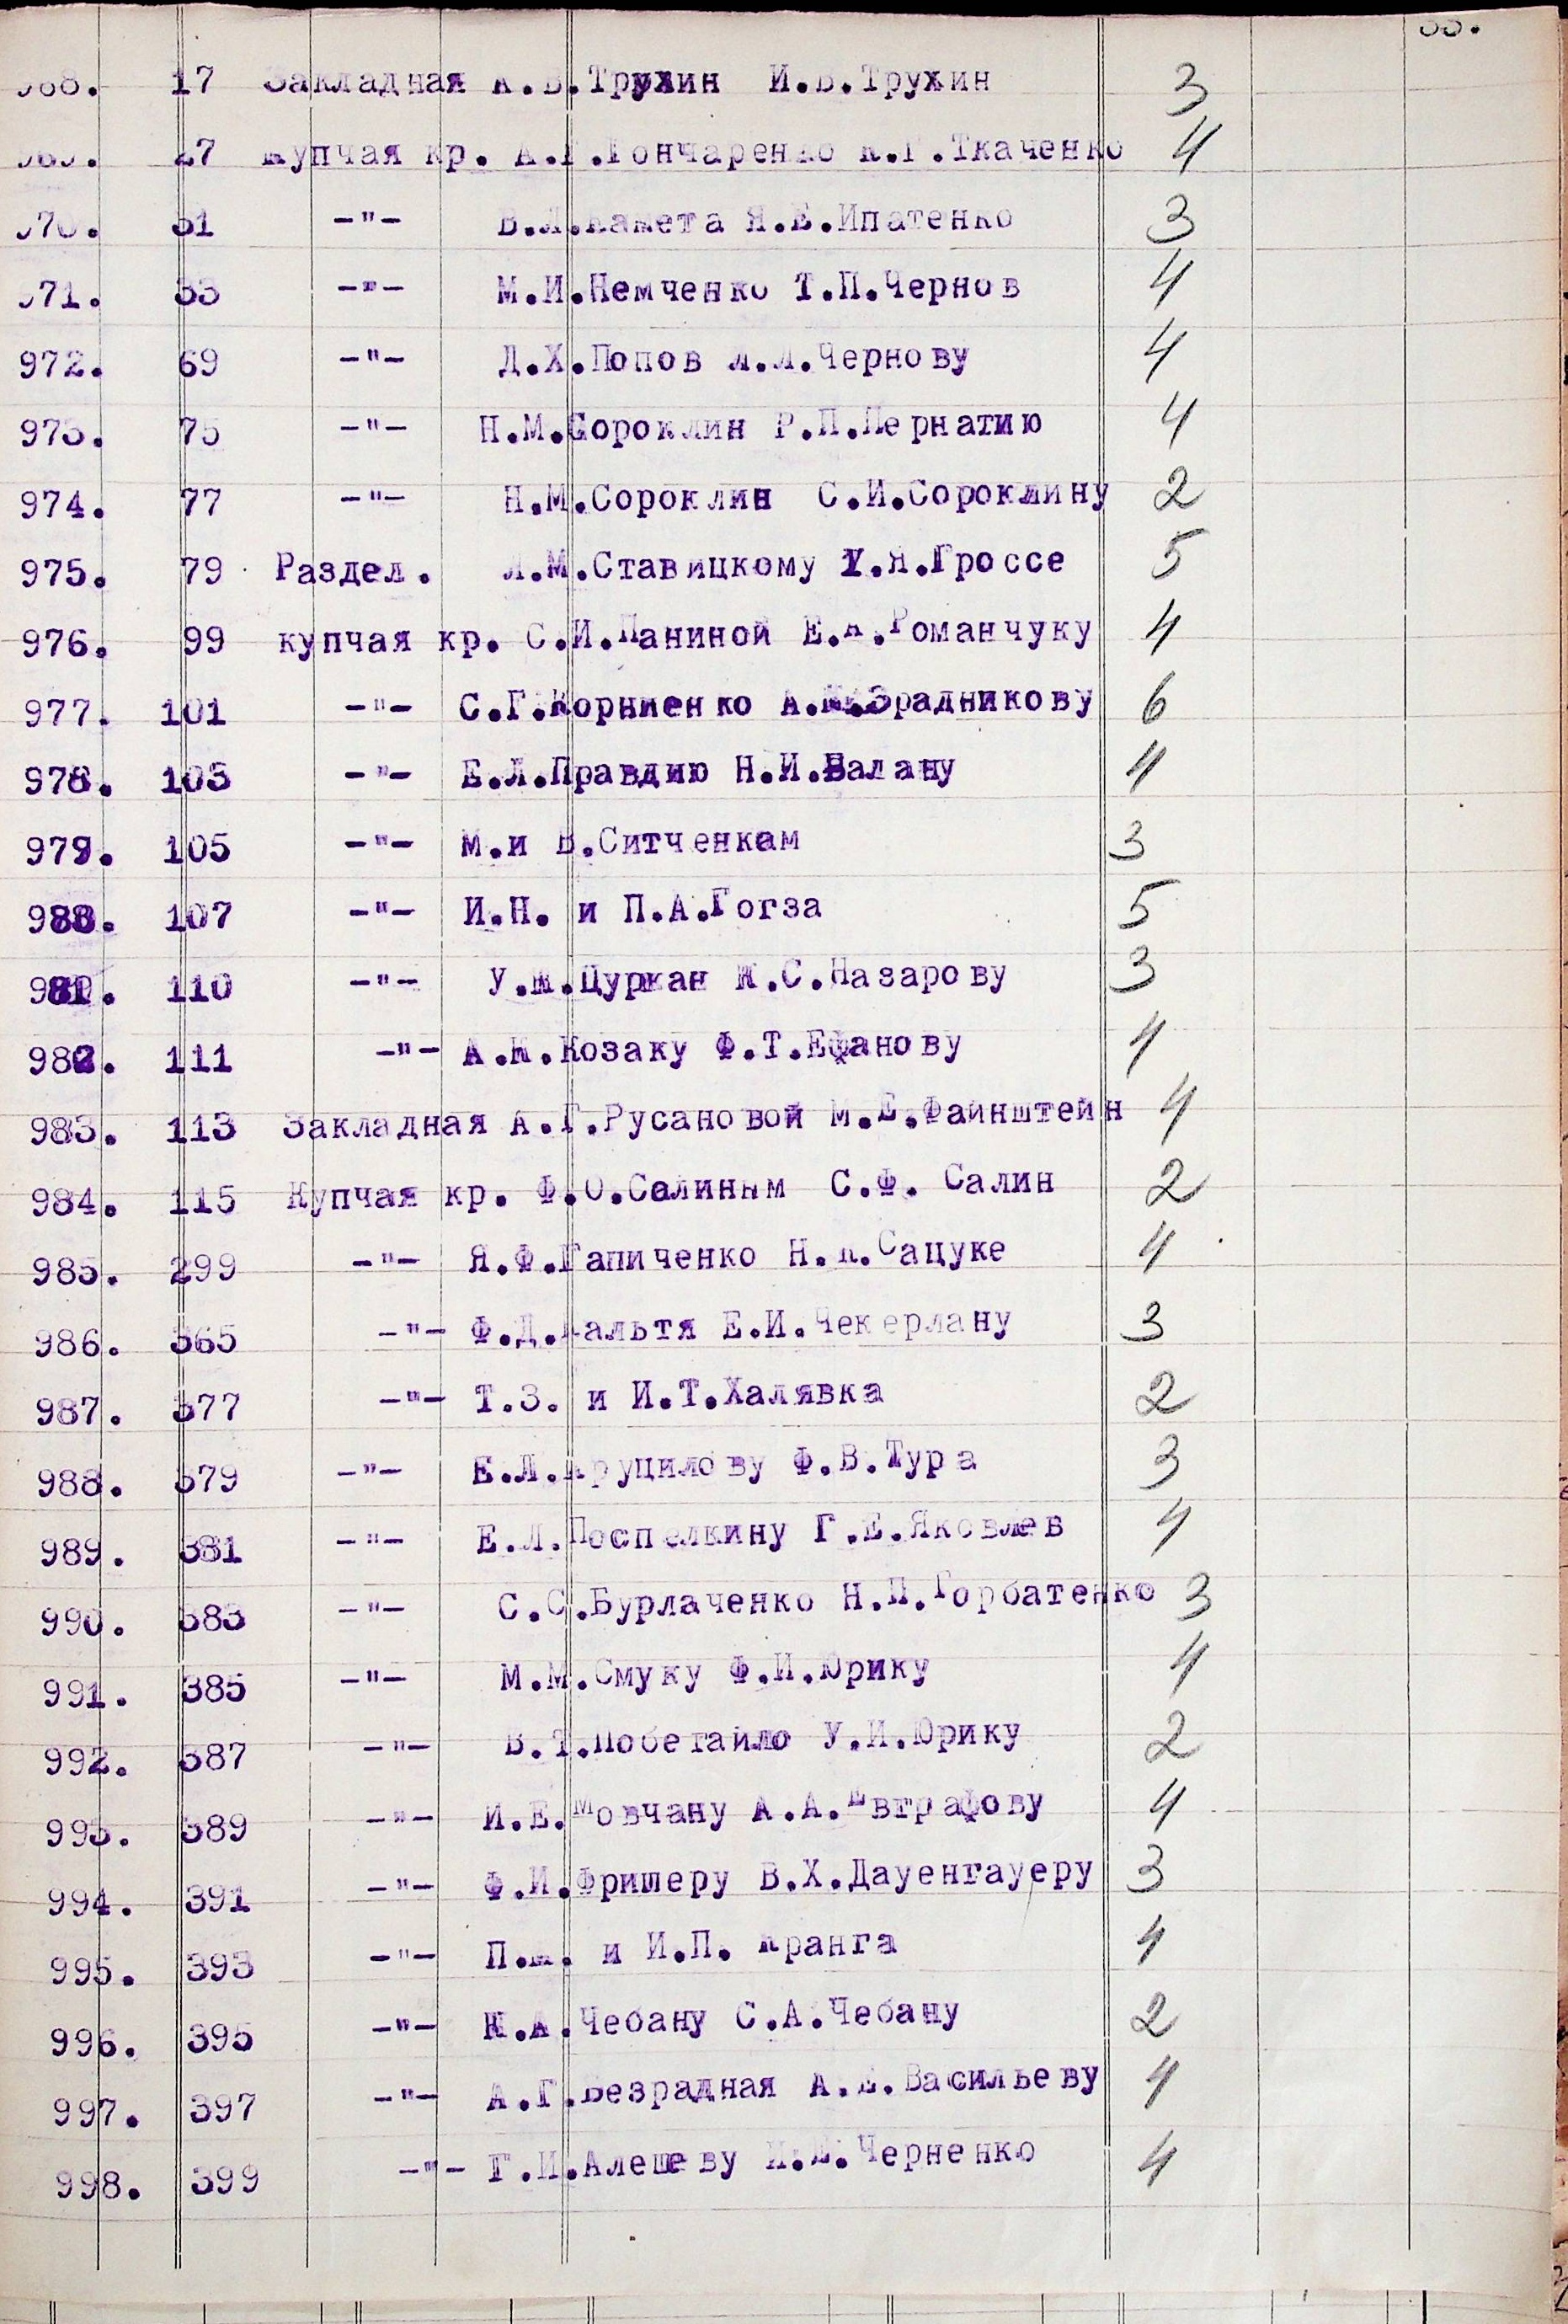 33.
968. 17 Закладная А.В.Трухин И.В.Трухин 3
969. 27 Купчая кр. А.Г.Гончаренко К.Г.Ткаченко 4
970. 31 -"- В.Л. Я.Е.Ипатенко 3
971. 33 -"- М.И.Немченко Т.П.Чернов 4
972. 69 -"- Д.Х.Попов Чернову 4
973. 75 -"- Н.М.Сороклин Р.П.Пернатию 4
974. 77 -"- Н.М.Сороклин С.И.Сороклину 2
975. 79 Раздел. Л.М.Ставицкому Я.Гроссе 5
976. 99 купчая кр. С.И.Паниной Е.К.Романчуку 4
977. 101 -"- С.Г.Корниенко Зрадникову 6
978. 103 -"- Е.Л.Правдию Н.И.Балану 4
979. 105 -"- М.и В.Ситченкам 3
980. 107 -"- И.Н. и П.А.Гогза 5
981. 110 -"- Цуркан С.Назарову 3
982. 111 -"- Козаку Ф.Т.Ефанову 4
983. 113 Закладная А.Г.Русановой М.Е.Файнштейн 4
984. 115 Купчая кр. Ф.О.Салиным С.Ф. Салин 2
985. 299 -"- Я.Ф.Гапиченко Н.К.Сацуке 4
986. 365 -"- Ф.Д.Кальтя Е.И.Чекерлану 3
987. 377 -"- Т.З. и И.Т.Халявка 2
988. 379 -"- Е.Л.Круцилову Ф.В.Тура 3
989. 381 -"- Е.Л.Поспелкину Г.Е.Яковлев 4
990. 383 -"- С.С.Бурлаченко Н.П.Горбатенко 3
991. 385 -"- М.М.Смуку Ф.И.Юрику 4
992. 387 -"- В.Т.Побегайло У.И.Юрику 2
993. 389 -"- И.Е.Мовчану А.А.Евграфову 4
994. 391 -"- Ф.И.Фришеру В.Х.Дауенгауеру 3
995. 393 -"- и И.П. Кранга 4
996. 395 -"- Чебану С.А.Чебану 2
997. 397 -"- А.Г.Безрадная А.Е.Васильеву 4
998. 399 -"- Г.И.Алешеву Черненко 4